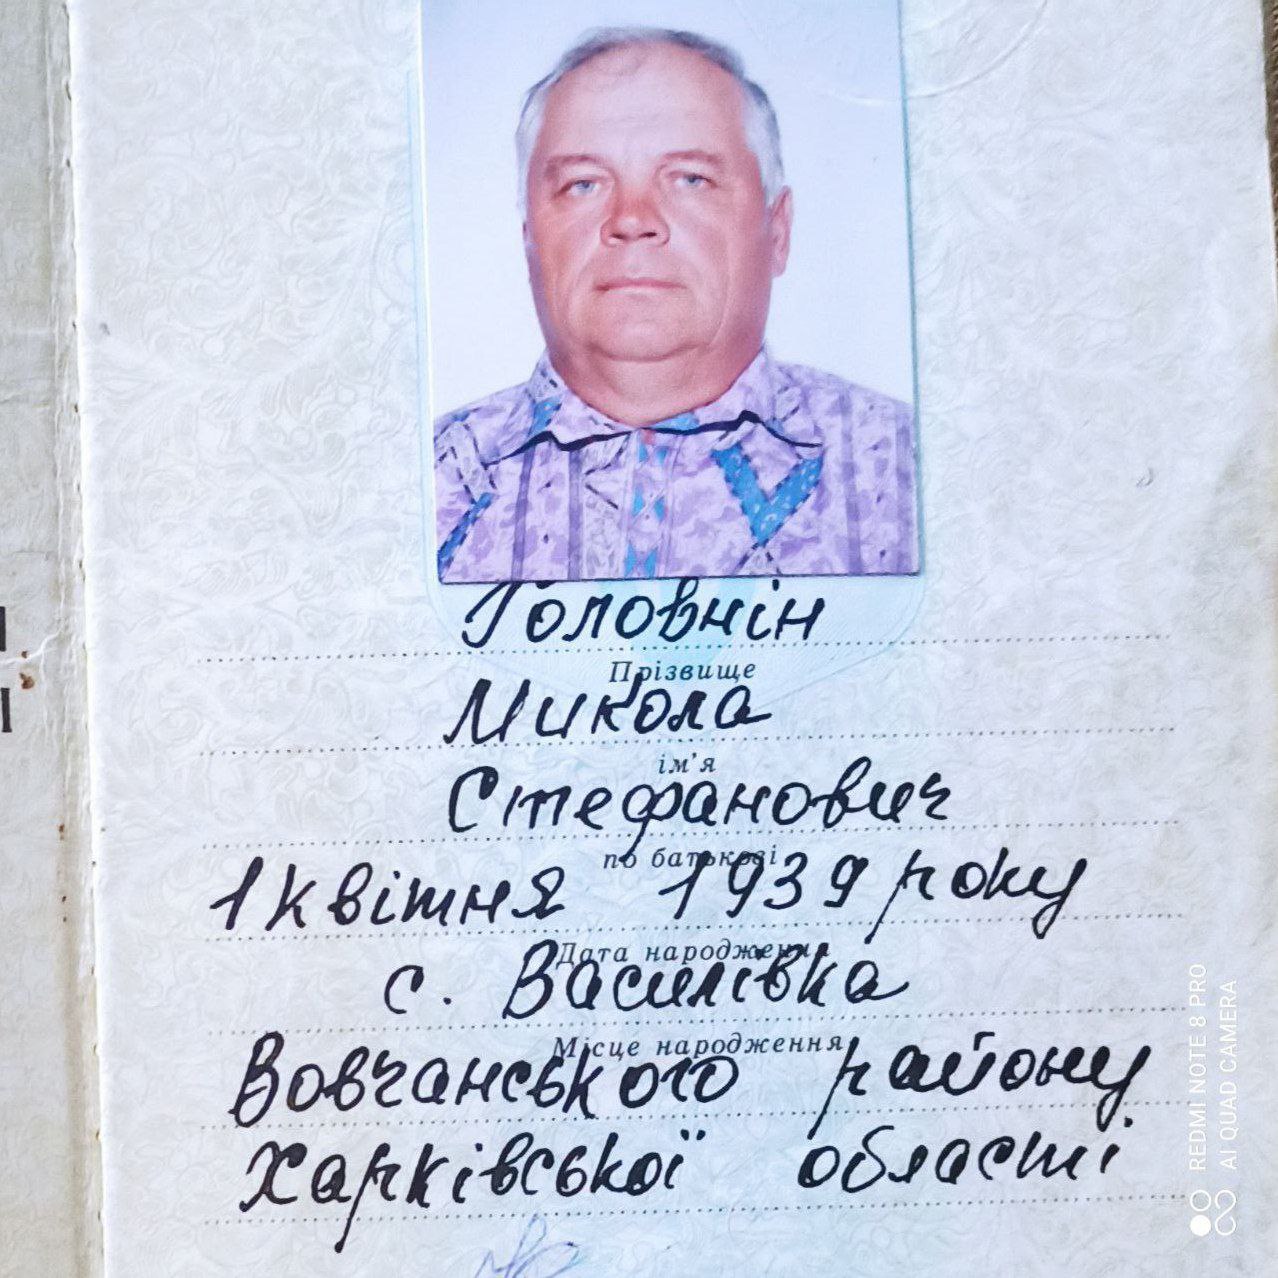 Головнін
Прізвище
Микола
ім'я
Стефанович
по батькові
1 квітня 1939 року
Дата народження
с. Василівка
Місце народження
Вовчанського району
Харківської області
REDMI NOTE 8 PRO
AI QUAD CAMERA